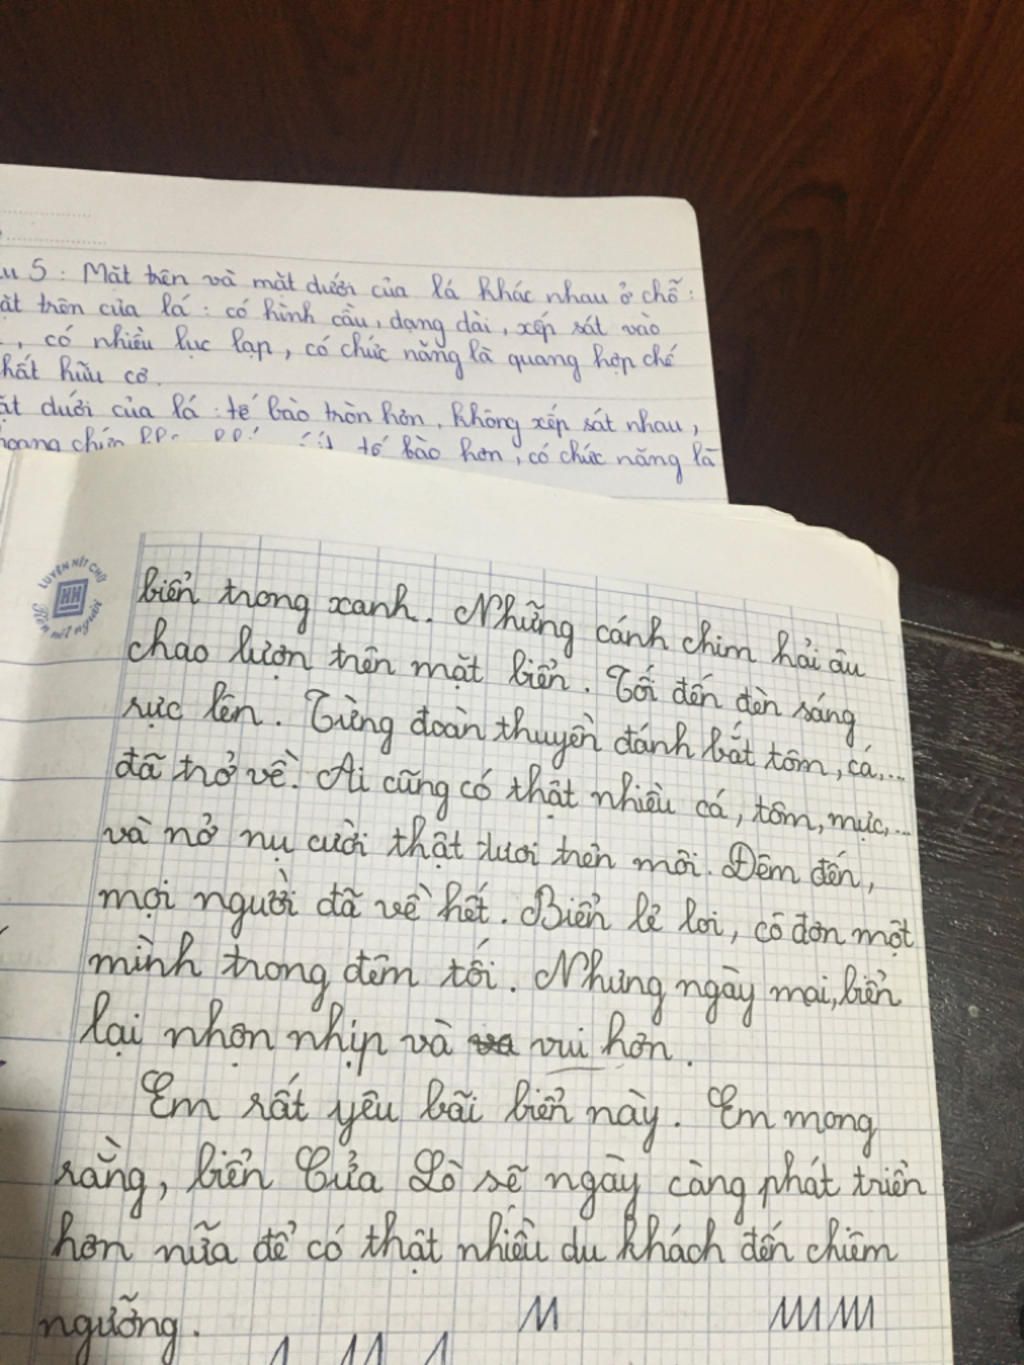 u 5 : Mặt trên và mặt dưới của lá khác nhau ở chỗ :
ặt trên của lá : có hình cầu, dạng dài, xếp sát vào
, có nhiều lục lạp, có chức năng là quang hợp chế
hất hữu cơ.
ặt dưới của lá : tế bào tròn hơn, không xếp sát nhau,
tế bào hơn, có chức năng là
LUYỆN NÉT CHỮ
Rèn nết người
HH
biển trong xanh. Những cánh chim hải âu
chao lượn trên mặt biển. Tối đến đèn sáng
rực lên. Từng đoàn thuyền đánh bắt tôm, cá,...
đã trở về. Ai cũng có thật nhiều cá, tôm, mực,...
và nở nụ cười thật tươi trên môi. Đêm đến,
mọi người đã về hết. Biển lẻ loi, cô đơn một
mình trong đêm tối. Nhưng ngày mai, biển
lại nhộn nhịp và va vui hơn.
Em rất yêu bãi biển này. Em mong
rằng, biển Cửa Lò sẽ ngày càng phát triển
hơn nữa để có thật nhiều du khách đến chiêm
ngưỡng.